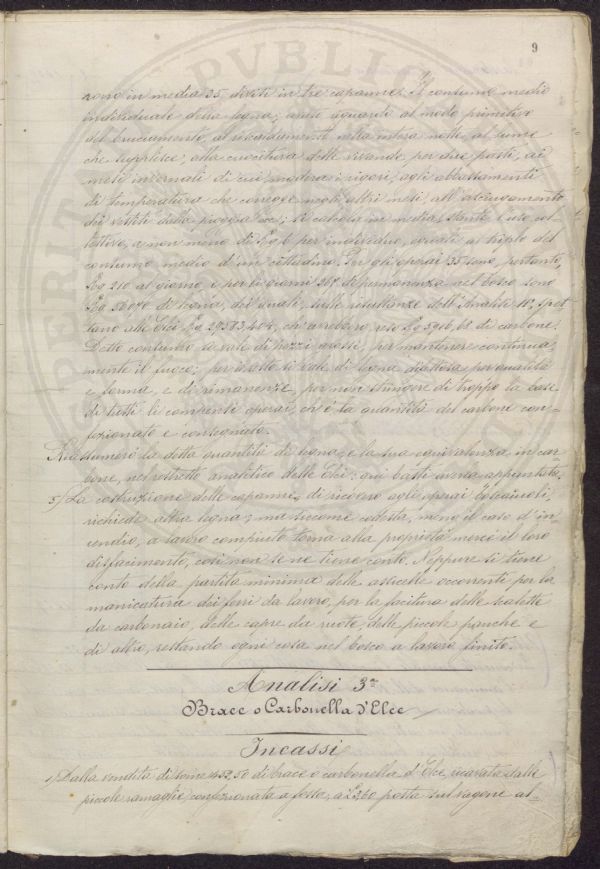 9
sono in media 35 divisi in tre capanne. Il consumo medio
individuale della legna, avuti riguardi al modo primitivo
del bruciamento, al riscaldamento nella intera notte, al lume
che supplisce, alla cucinatura delle vivande per due pasti, ai
mesi invernali di cui modera i rigori, agli abbattimenti
di temperatura che corregge negli altri mesi, all'asciugamento
dei vestiti dalla pioggia ecc., si calcola in media, stante l'uso col-
lettivo, a non meno di Kg 6 per individuo, quasi al triplo del
consumo medio d'un cittadino. Per gli operai 35 sono, pertanto,
Kg 210 al giorno, e per i giorni di permanenza nel bosco sono
Kg di legna, dei quali, sulle resultanze dell'Analisi spet-
tano alle Elci Kg ch'avrebbero reso Kg di carbone.
Detto consumo si vale di pezzi grossi, per mantenere continua-
mente il fuoco; per il resto si vale di legna per quantità
e forma, e di rimanenze, per non stringere di troppo la base
di tutti li compensi operai, ch'è la quantità del carbone con-
fezionato e consegnato.
Riassumerò la detta quantità di legna, e la sua equivalenza in car-
bone, nel ristretto analitico delle Elci: qui basti averla appuntata.
5) La costruzione delle capanne, di ricovero agli operai boscaiuoli,
richiede altra legna; ma siccome codesta, meno il caso d'in-
cendio, a lavoro compiuto torna alla proprietà mercè il loro
disfacimento, così non se ne tiene conto. Neppure si tiene
conto della partita minima delle assicelle occorrenti per la
manicatura dei ferri da lavoro, per la facitura delle scalette
da carbonaio, delle capre da ruote, delle piccole panche e
di altro, restando ogni cosa nel bosco a lavori finiti.
Analisi 3ª
Brace o Carbonella d'Elce
Incassi
1) Dalla vendita di some 452,50 di brace o carbonella d'Elce, ricavata dalle
piccole ramaglie, confezionata a fosse, a £ 2,60 posta sul vagone al-